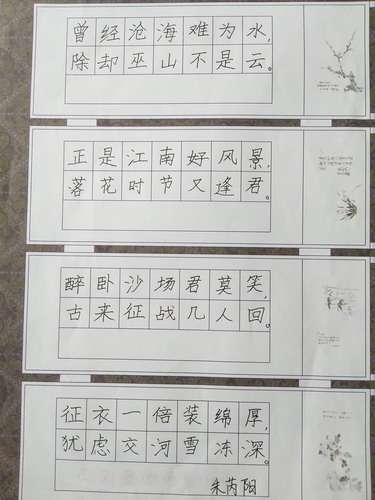 曾经沧海难为水,
除却巫山不是云。
正是江南好风景,
落花时节又逢君。
醉卧沙场君莫笑,
古来征战几人回。
征衣一倍装绵厚,
犹虑交河雪冻深。
朱芮阳